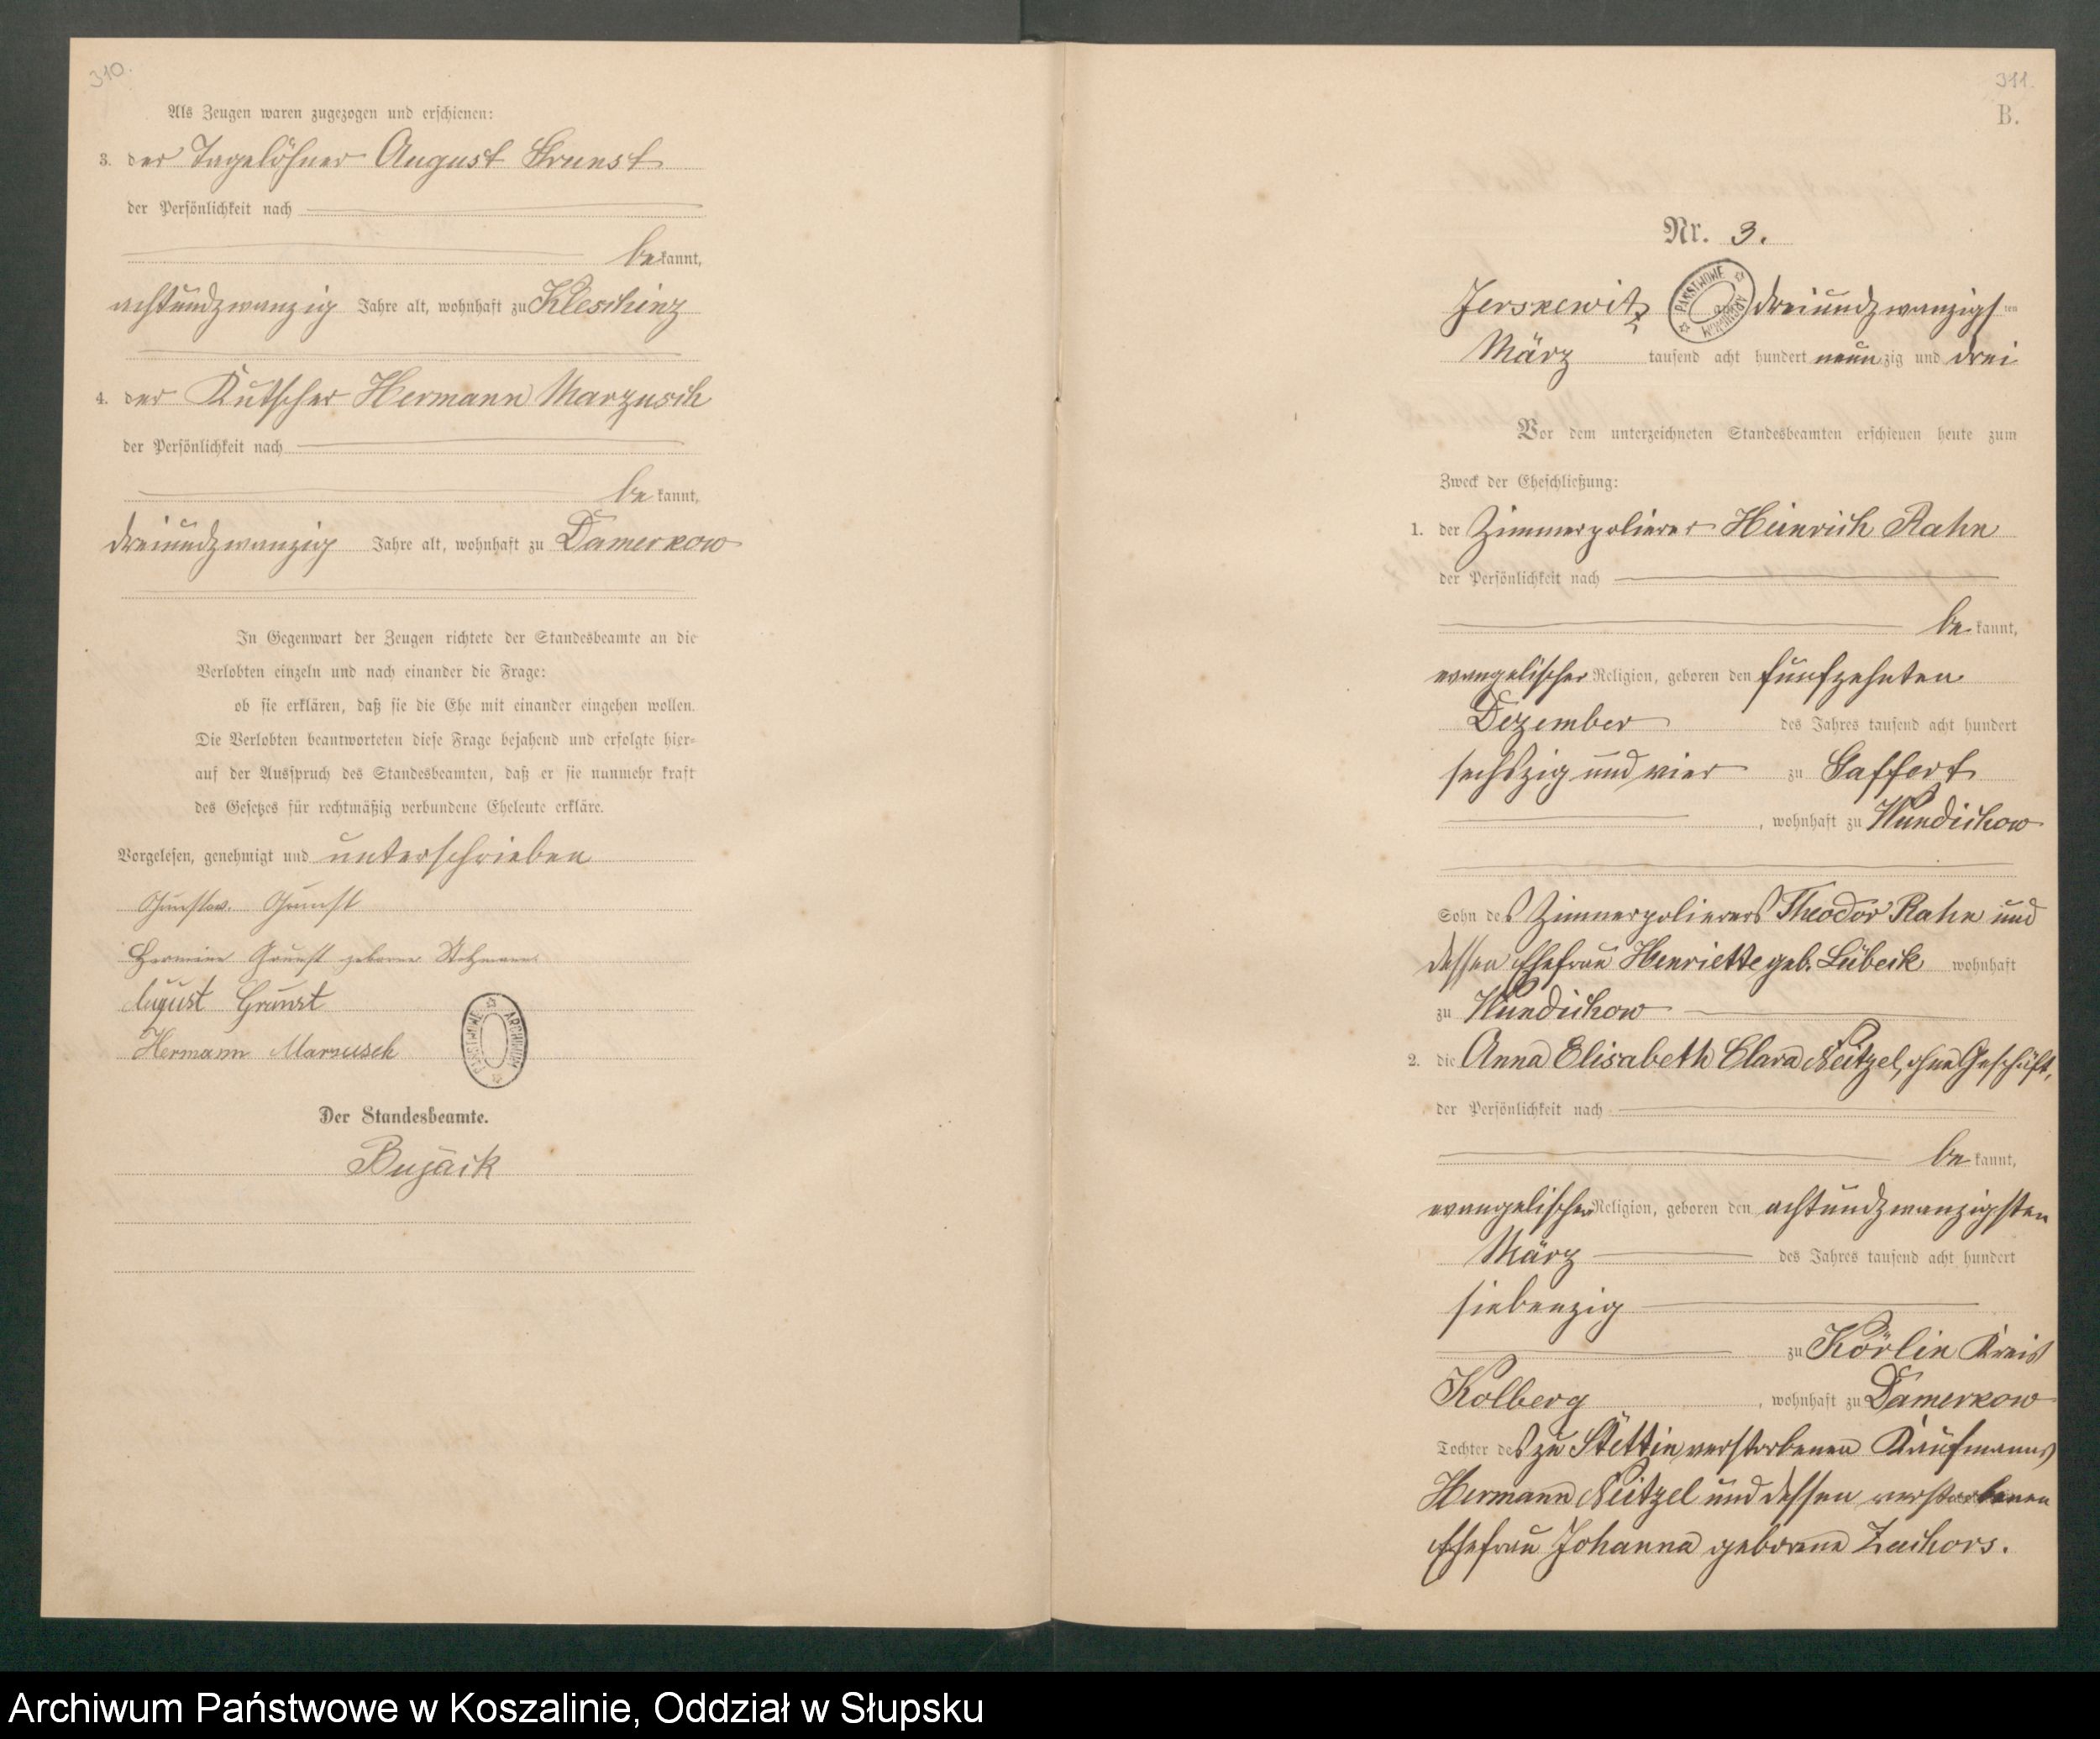 310.
Als Zeugen waren zugezogen und erschienen:
3. der Tagelöhner August Grunst
der Persönlichkeit nach
be kannt,
achtundzwanzig Jahre alt, wohnhaft zu Kleschinz
4. der Kutscher Hermann Marzusch
der Persönlichkeit nach
be kannt,
dreiundzwanzig Jahre alt, wohnhaft zu Damerkow
In Gegenwart der Zeugen richtete der Standesbeamte an die
Verlobten einzeln und nach einander die Frage:
ob sie erklären, daß sie die Ehe mit einander eingehen wollen.
Die Verlobten beantworteten diese Frage bejahend und erfolgte hier-
auf der Ausspruch des Standesbeamten, daß er sie nunmehr kraft
des Gesetzes für rechtmäßig verbundene Eheleute erkläre.
Vorgelesen, genehmigt und unterschrieben
Grunst
Hermine Grunst geborene
August Grunst
Hermann Marzusch
ARCHIWUM PAŃSTWOWE
Der Standesbeamte.
Bujack
311.
B.
Nr. 3.
Jerskewitz dreiundzwanzigsten
März tausend acht hundert neunzig und drei
Vor dem unterzeichneten Standesbeamten erschienen heute zum
Zweck der Eheschließung:
1. der Zimmerpolierer Heinrich Rahn
der Persönlichkeit nach
be kannt,
evangelischer Religion, geboren den fünfzehnten
Dezember des Jahres tausend acht hundert
sechszig und vier zu Gaffert
, wohnhaft zu Wundichow
Sohn des Zimmerpolierers Theodor Rahn und
dessen Ehefrau Henriette geb. Lübeck wohnhaft
zu Wundichow
2. die Anna Elisabeth Clara Neitzel, ohne Geschäft,
der Persönlichkeit nach
be kannt,
evangelischer Religion, geboren den achtundzwanzigsten
März des Jahres tausend acht hundert
siebenzig
zu Körlin Kreis
Kolberg , wohnhaft zu Damerkow
Tochter des zu Stettin verstorbenen Kaufmanns
Hermann Neitzel und dessen verstorbenen
Ehefrau Johanna geborene Zachors.
Archiwum Państwowe w Koszalinie, Oddział w Słupsku